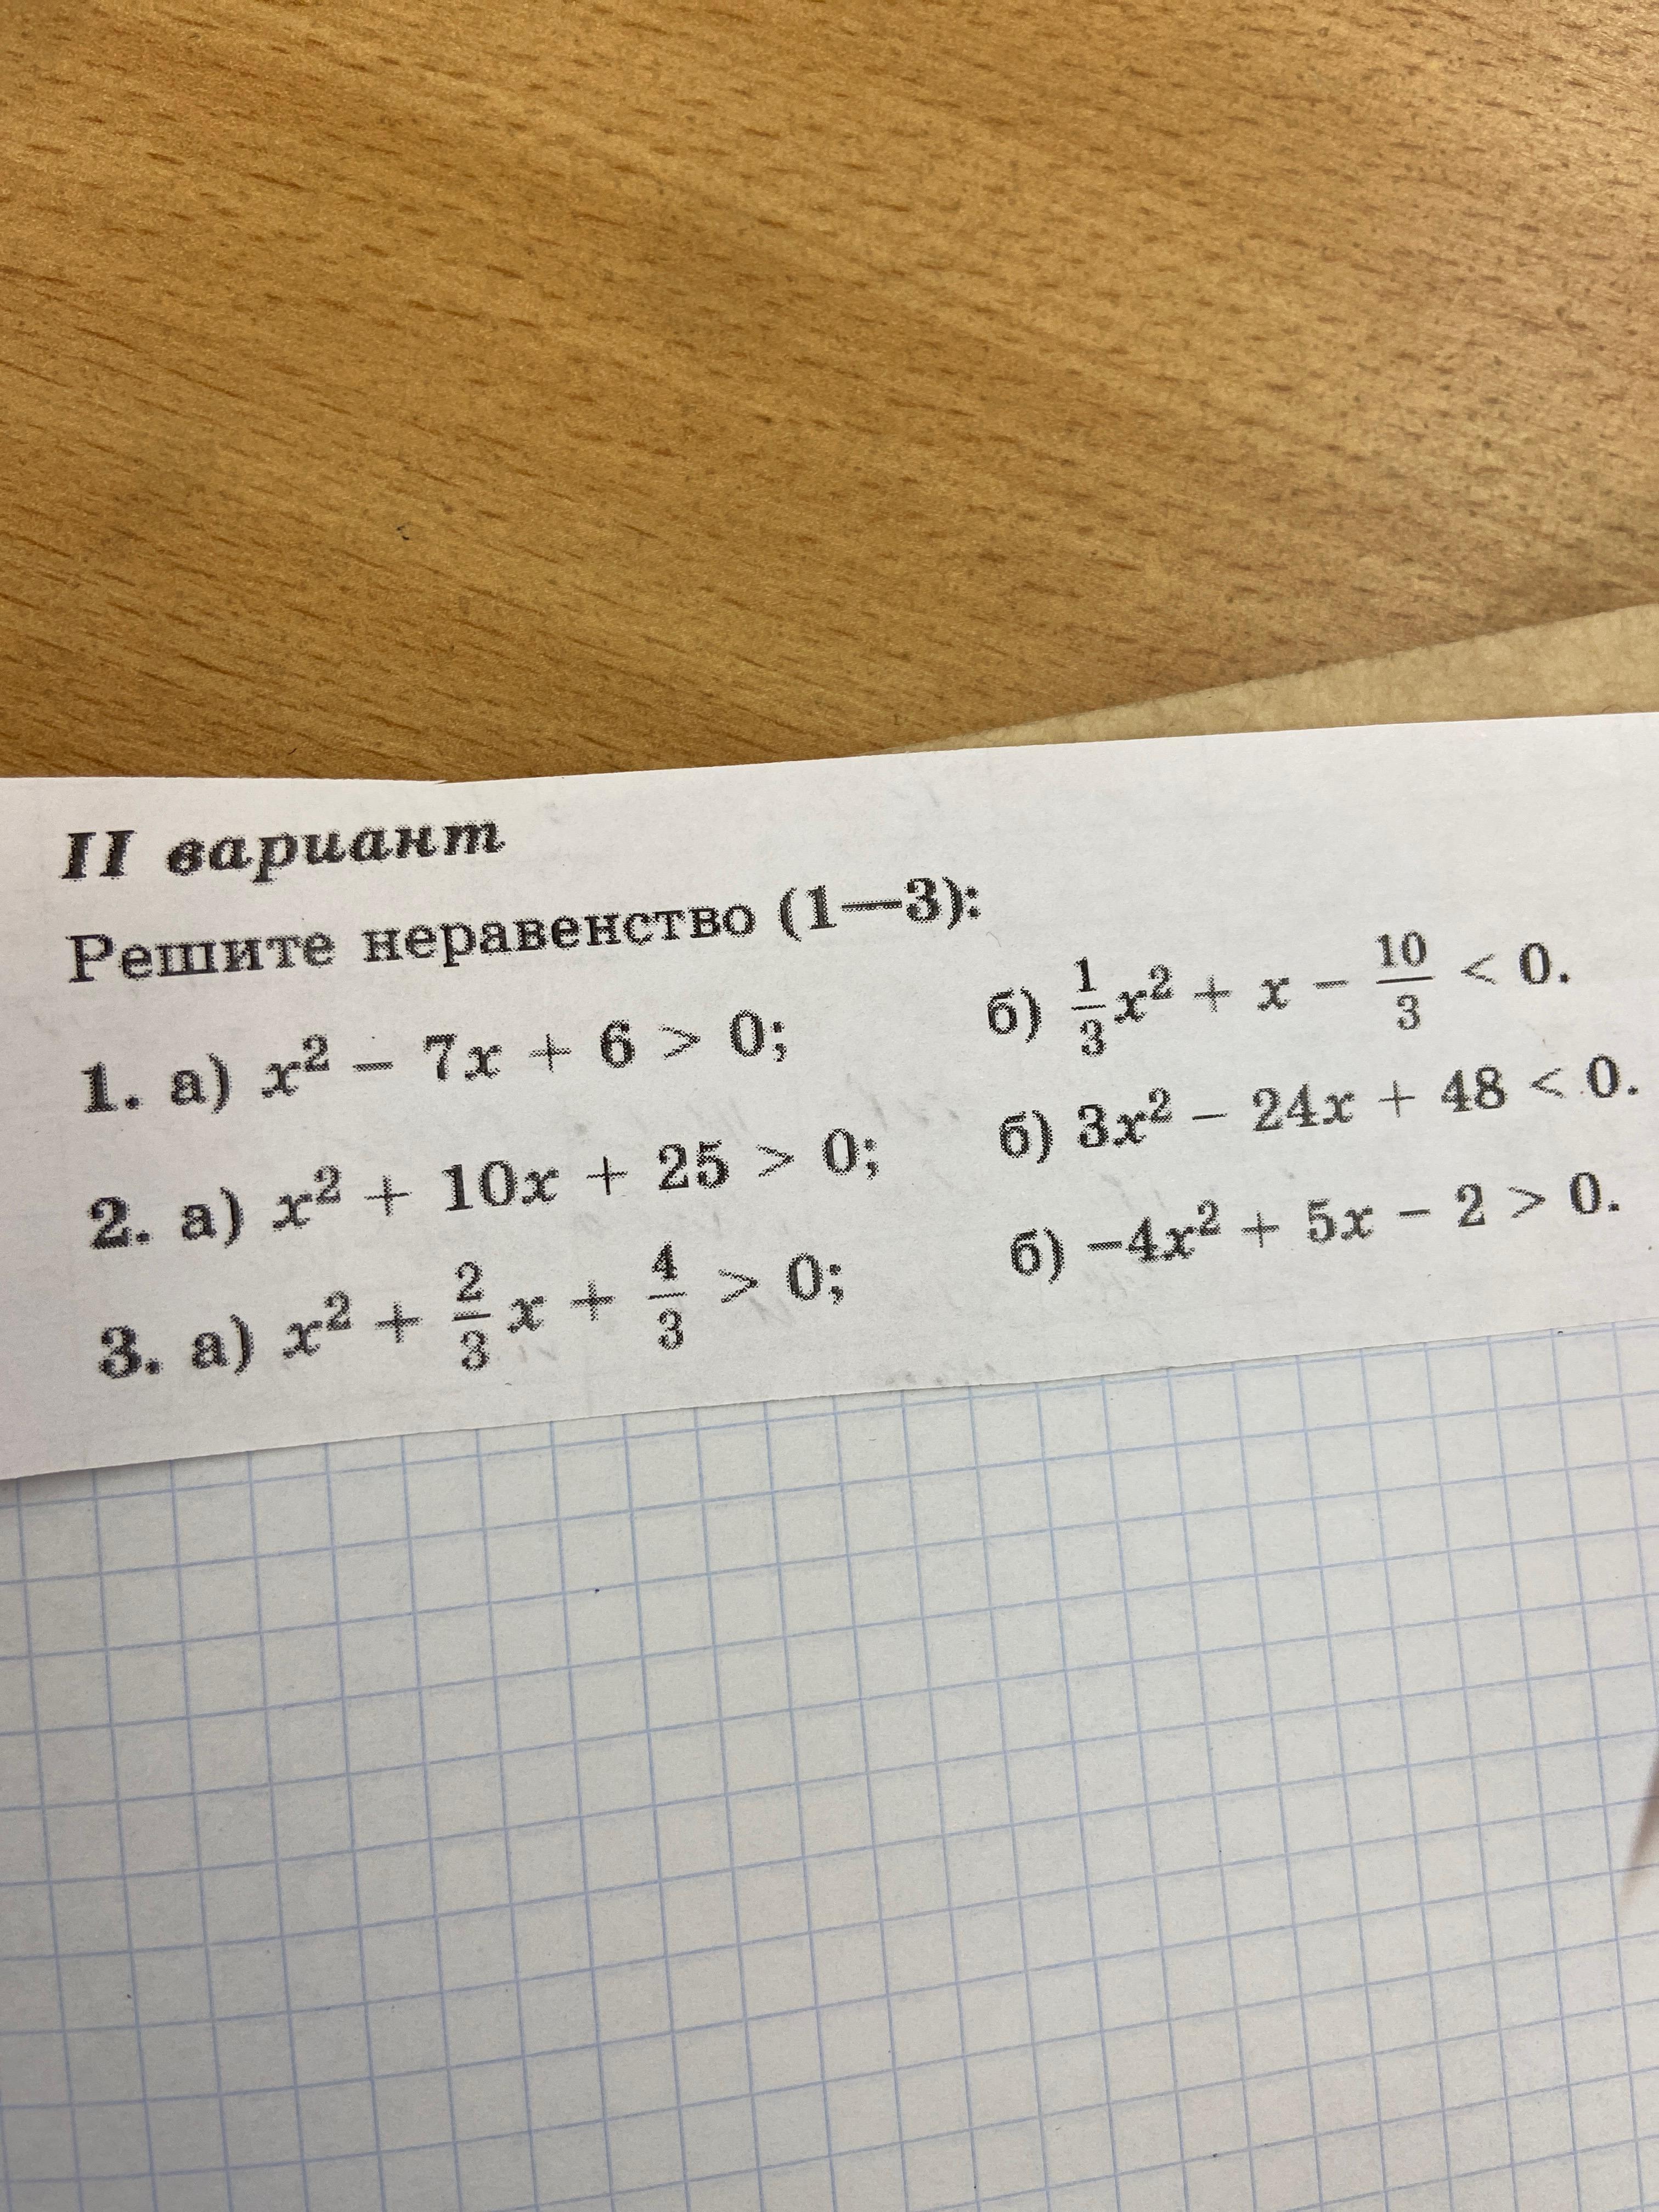 II вариант
Решите неравенство (1—3):
1. а) x² – 7x + 6 > 0; б) 1/3 x² + x – 10/3 < 0.
2. а) x² + 10x + 25 > 0; б) 3x² – 24x + 48 < 0.
3. а) x² + 2/3 x + 4/3 > 0; б) –4x² + 5x – 2 > 0.